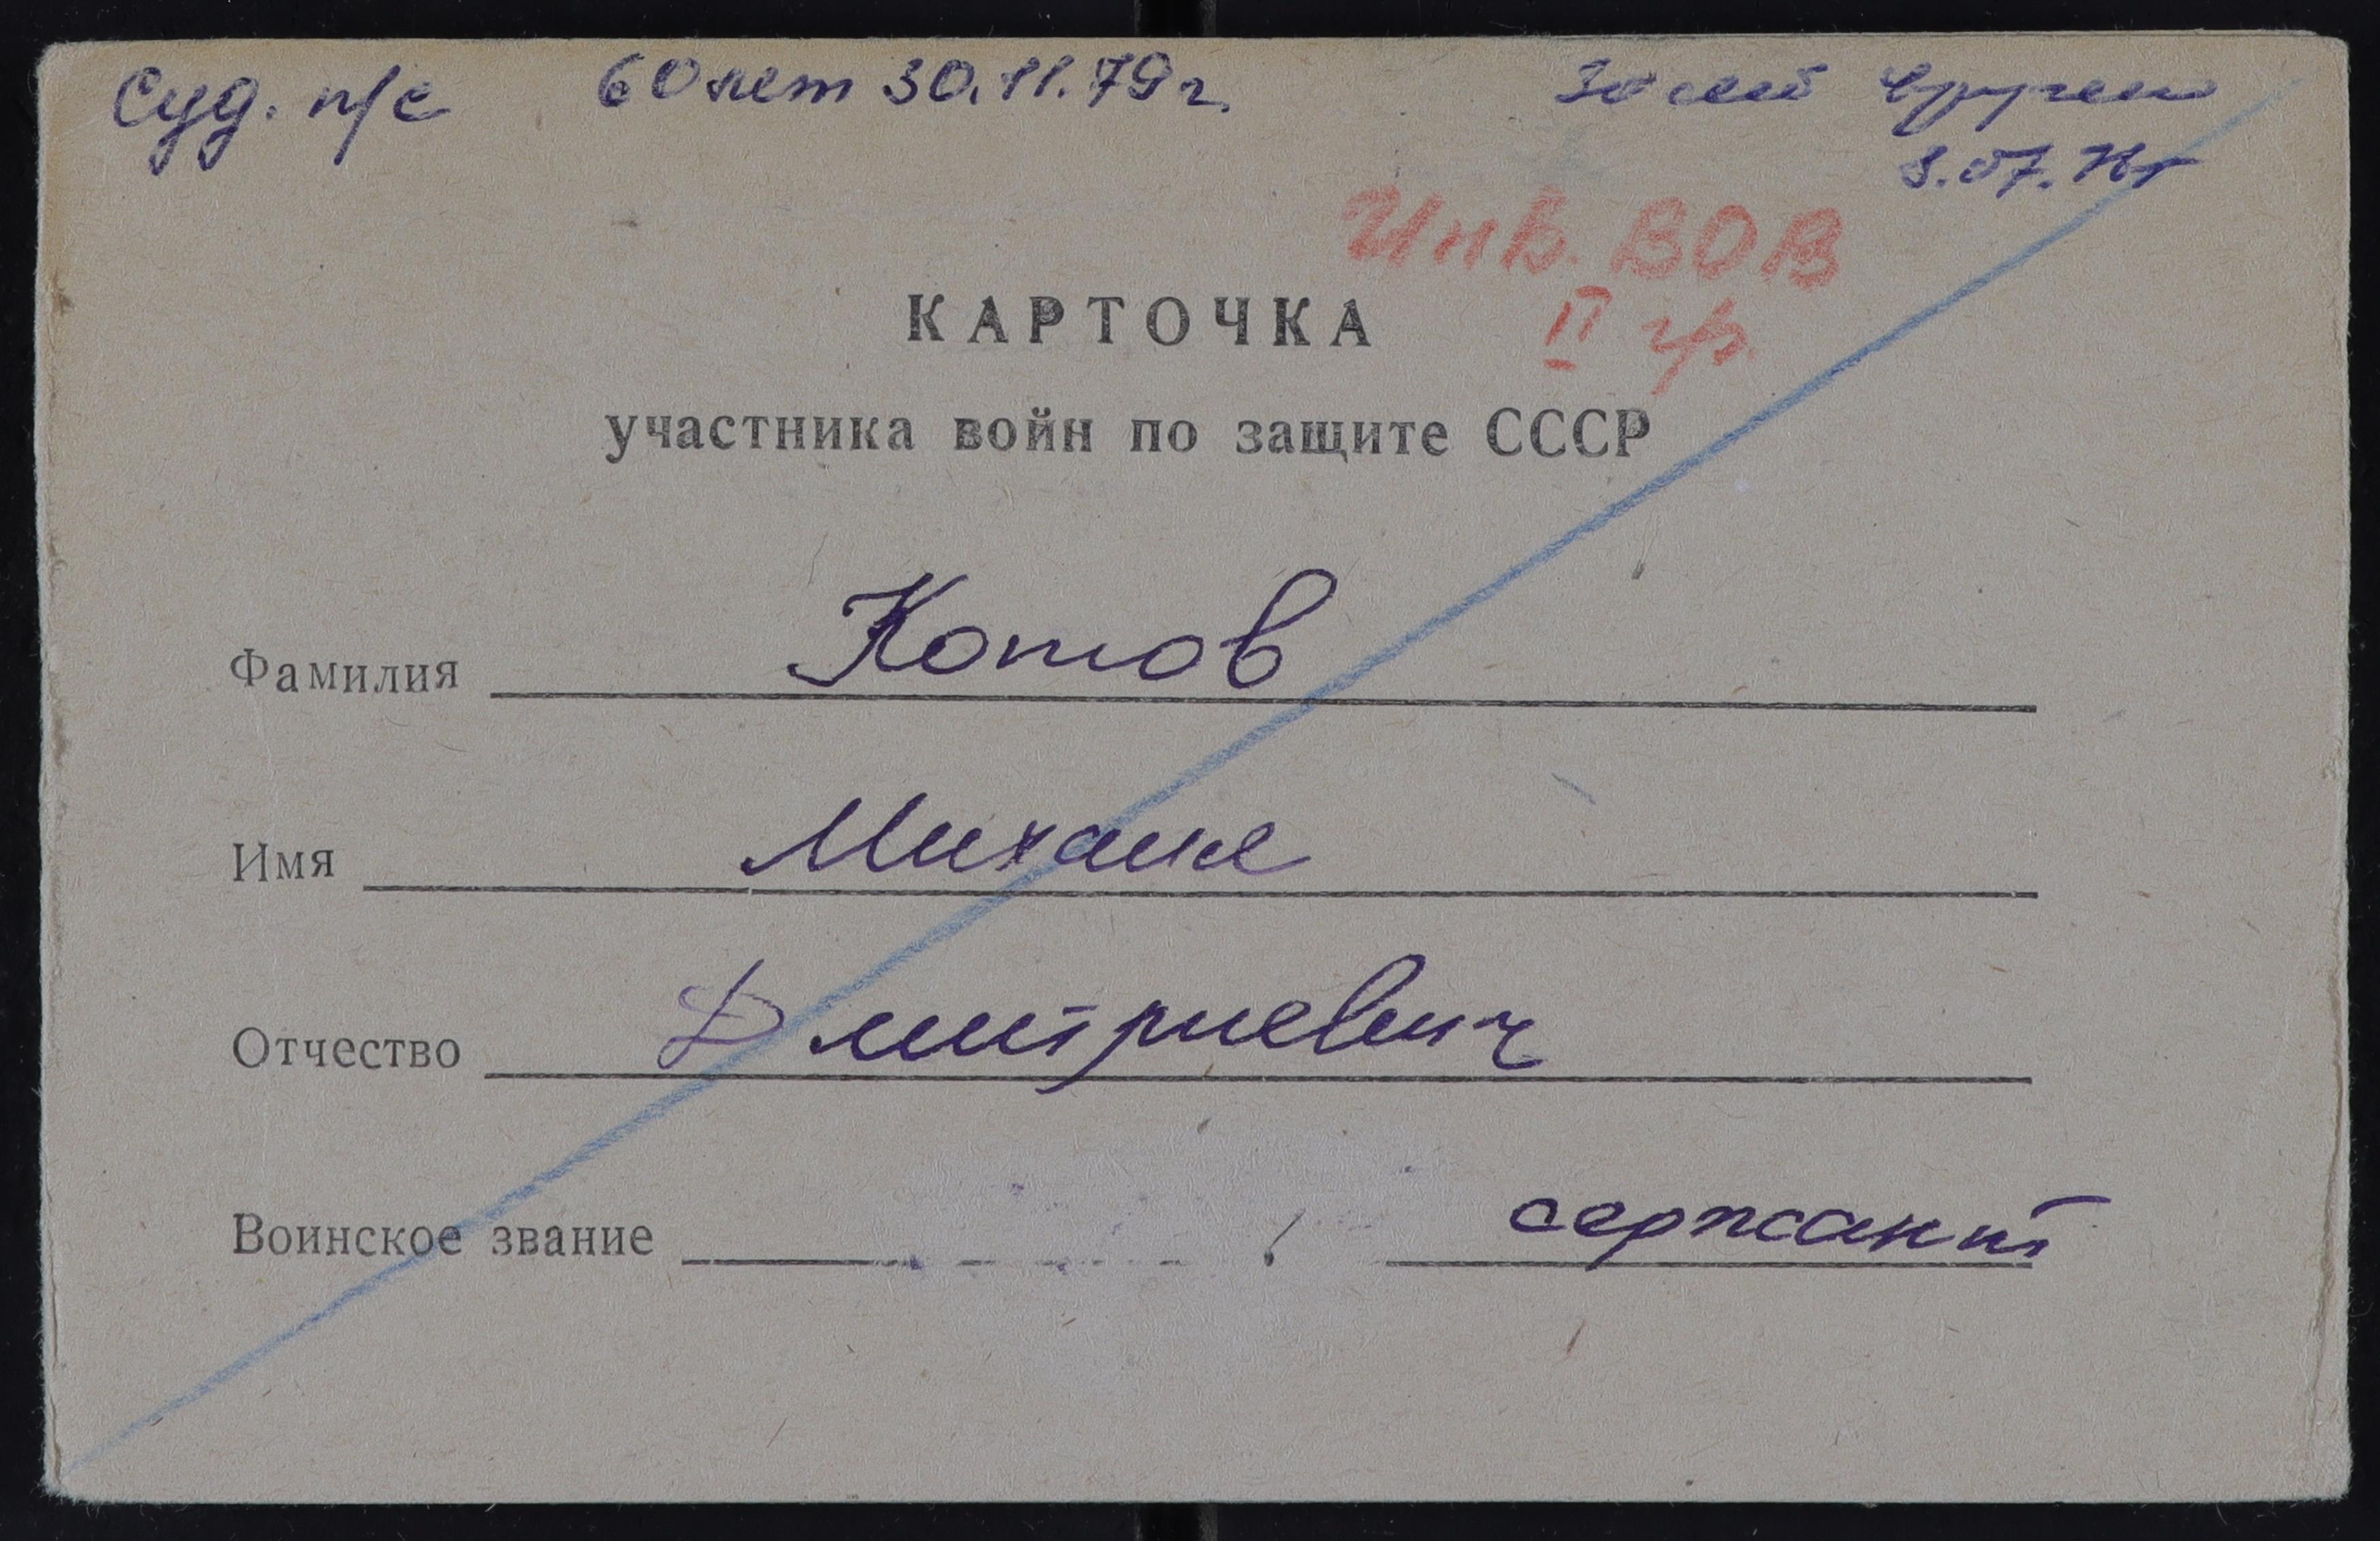 Суд. п/с 60 лет 30.11.79г. 30 лет
Инв. ВОВ
II гр.
КАРТОЧКА
участника войн по защите СССР
Фамилия Котов
Имя Михаил
Отчество Дмитриевич
Воинское звание сержант